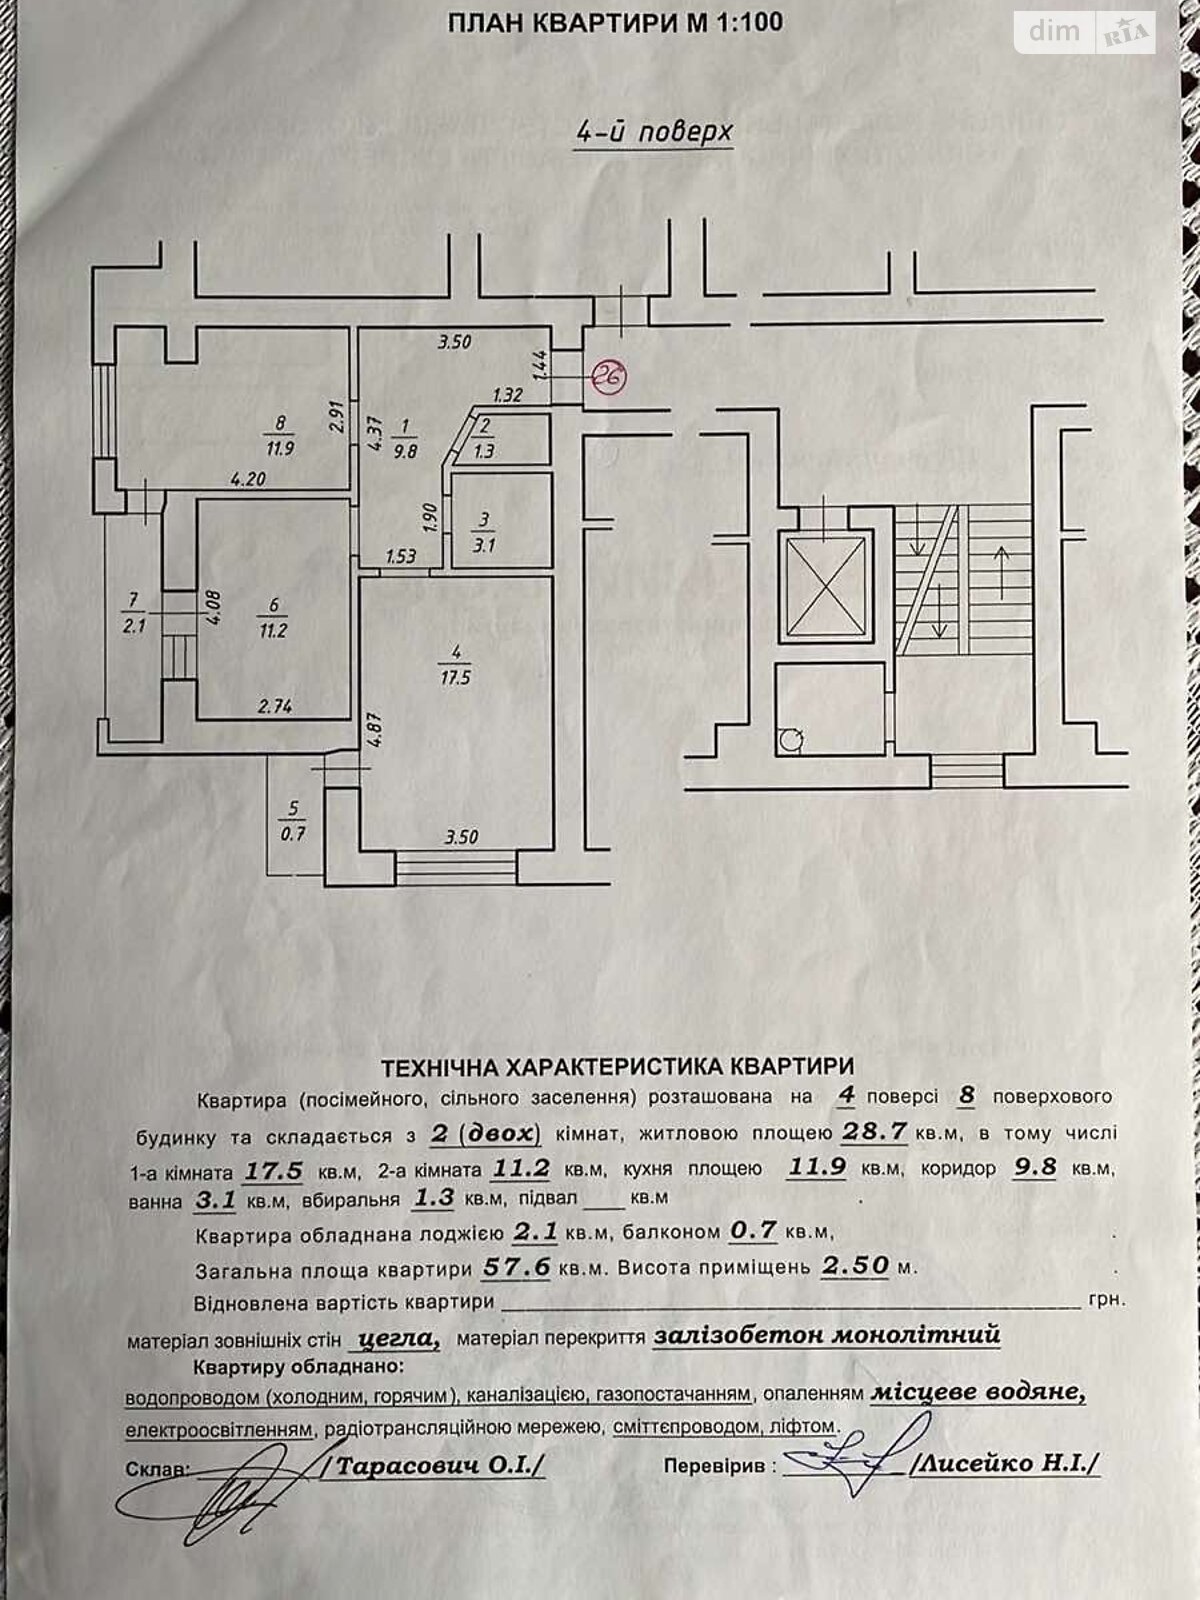 ПЛАН КВАРТИРИ М 1:100
dim RIA
4-й поверх
3.50
1.44
26
1.32
8
11.9
2.91
4.37
1
9.8
2
1.3
4.20
1.90
3
3.1
1.53
7
2.1
4.08
6
11.2
4
17.5
2.74
4.87
5
0.7
3.50
ТЕХНІЧНА ХАРАКТЕРИСТИКА КВАРТИРИ
Квартира (посімейного, сільного заселення) розташована на 4 поверсі 8 поверхового
будинку та складається з 2 (двох) кімнат, житловою площею 28.7 кв.м, в тому числі
1-а кімната 17.5 кв.м, 2-а кімната 11.2 кв.м, кухня площею 11.9 кв.м, коридор 9.8 кв.м,
ванна 3.1 кв.м, вбиральня 1.3 кв.м, підвал ___ кв.м
Квартира обладнана лоджією 2.1 кв.м, балконом 0.7 кв.м,
Загальна площа квартири 57.6 кв.м. Висота приміщень 2.50 м.
Відновлена вартість квартири ___ грн.
матеріал зовнішніх стін цегла, матеріал перекриття залізобетон монолітний
Квартиру обладнано:
водопроводом (холодним, горячим), каналізацією, газопостачанням, опаленням місцеве водяне,
електроосвітленням, радіотрансляційною мережею, сміттєпроводом, ліфтом.
Склав: /Тарасович О.І./ Перевірив : /Лисейко Н.І./